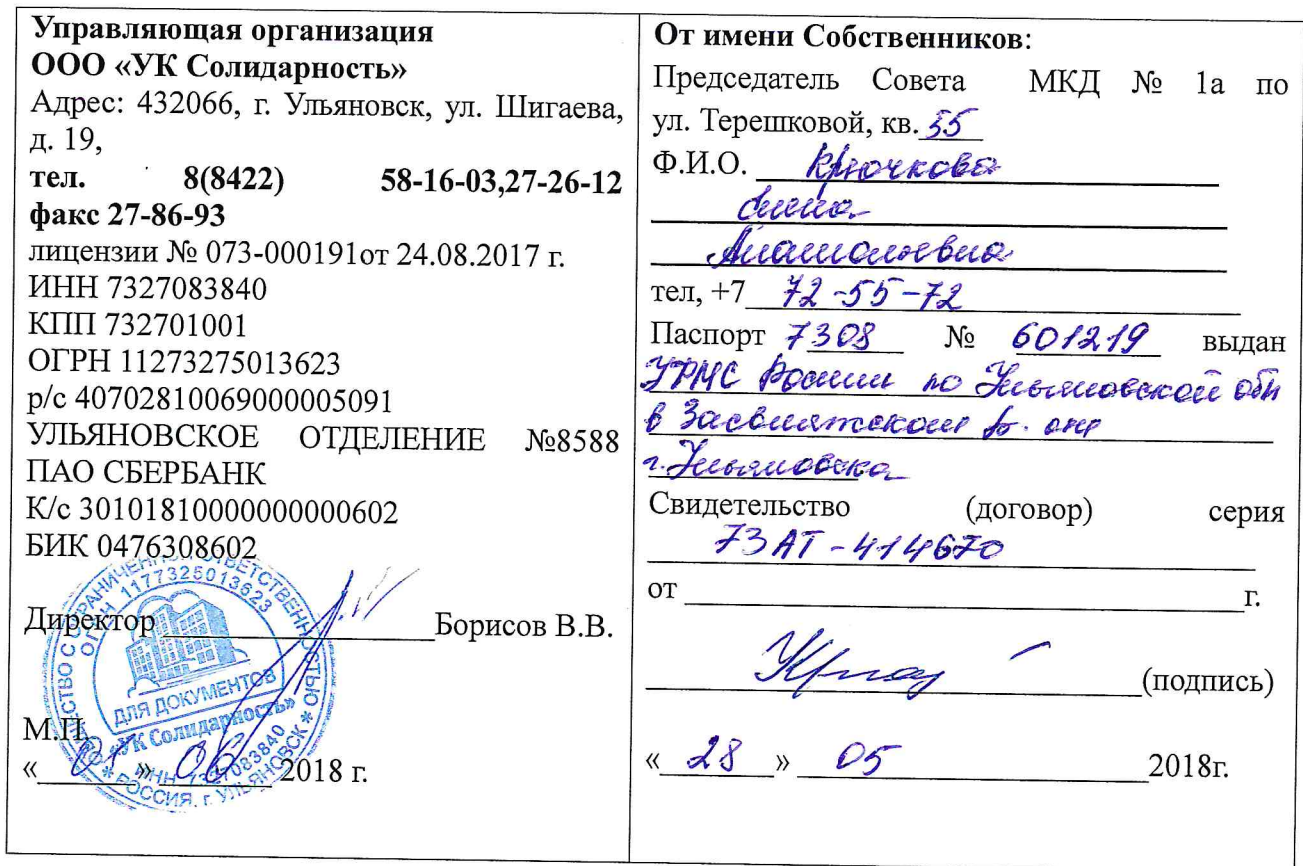 Управляющая организация
ООО «УК Солидарность»
Адрес: 432066, г. Ульяновск, ул. Шигаева,
д. 19,
тел. 8(8422) 58-16-03,27-26-12
факс 27-86-93
лицензии № 073-000191от 24.08.2017 г.
ИНН 7327083840
КПП 732701001
ОГРН 11273275013623
р/с 40702810069000005091
УЛЬЯНОВСКОЕ ОТДЕЛЕНИЕ №8588
ПАО СБЕРБАНК
К/с 30101810000000000602
БИК 0476308602
Директор Борисов В.В.
М.П.
« 01 » 06 2018 г.
ОБЩЕСТВО С ОГРАНИЧЕННОЙ ОТВЕТСТВЕННОСТЬЮ
ОГРН 1177325013623
ДЛЯ ДОКУМЕНТОВ
«УК Солидарность»
ИНН 7327083840
РОССИЯ, г. УЛЬЯНОВСК
От имени Собственников:
Председатель Совета МКД № 1а по
ул. Терешковой, кв. 55
Ф.И.О. Крючкова
Анатольевна
тел, +7 72-55-72
Паспорт 7308 № 601219 выдан
УФМС России по Ульяновской обл
в Засвияжском р-оне
г. Ульяновска
Свидетельство (договор) серия
73АТ-414670
от г.
(подпись)
« 28 » 05 2018г.